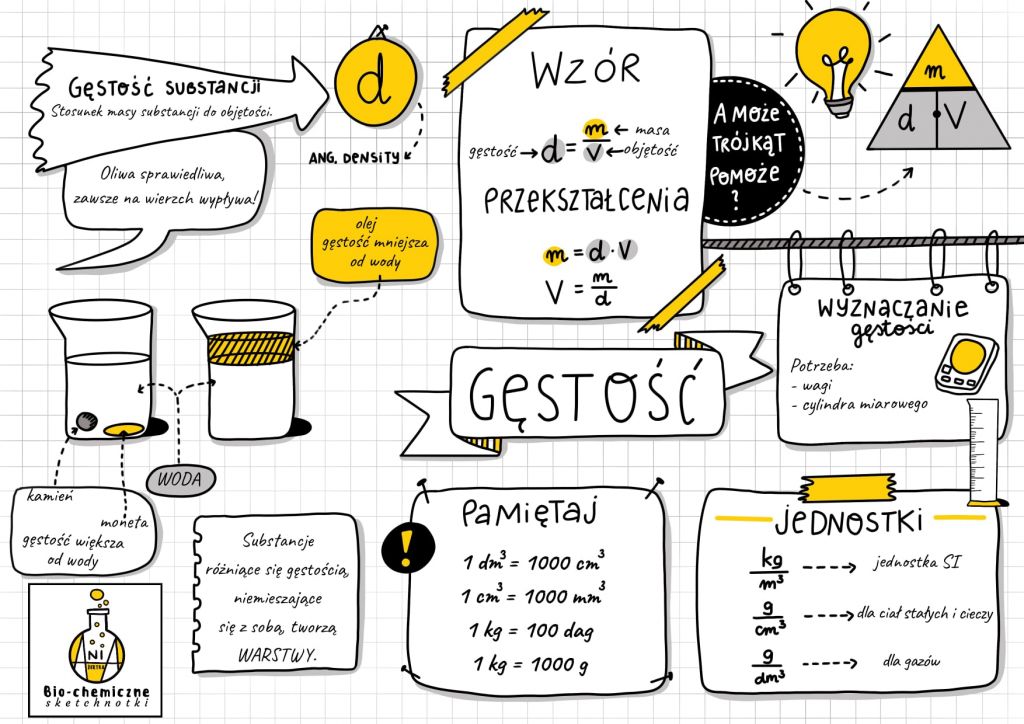 GĘSTOŚĆ SUBSTANCJI
Stosunek masy substancji do objętości.
d
ANG. DENSITY
Oliwa sprawiedliwa,
zawsze na wierzch wypływa!
WZÓR
gęstość → d = m/V ← masa
← objętość
PRZEKSZTAŁCENIA
m = d · V
V = m/d
A MOŻE
TRÓJKĄT
POMOŻE
?
m
d V
olej
gęstość mniejsza
od wody
WODA
kamień
moneta
gęstość większa
od wody
GĘSTOŚĆ
WYZNACZANIE
gęstości
Potrzeba:
- wagi
- cylindra miarowego
Substancje
różniące się gęstością,
niemieszające
się z sobą, tworzą
WARSTWY.
!
PAMIĘTAJ
1 dm³ = 1000 cm³
1 cm³ = 1000 mm³
1 kg = 100 dag
1 kg = 1000 g
JEDNOSTKI
kg/m³ ----> jednostka SI
g/cm³ ----> dla ciał stałych i cieczy
g/dm³ ----> dla gazów
NI
Bio-chemiczne
sketchnotki